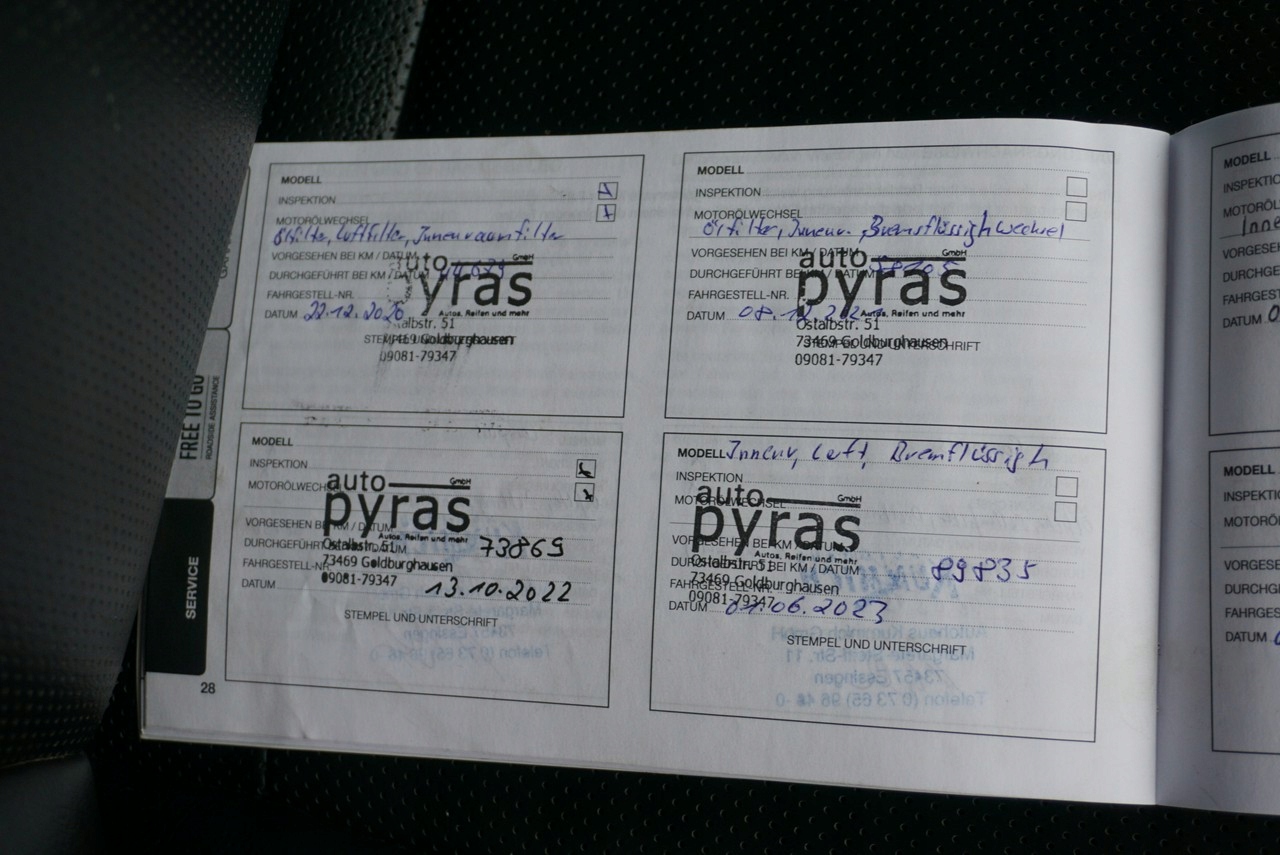 MODELL
INSPEKTION
MOTORÖLWECHSEL
Ölfilter, Luftfilter, Innenraumfilter
VORGESEHEN BEI KM / DATUM
DURCHGEFÜHRT BEI KM / DATUM
FAHRGESTELL-NR.
DATUM 22.12.2020
auto GmbH
pyras
Autos, Reifen und mehr
Ostalbstr. 51
73469 Goldburghausen
09081-79347
MODELL
INSPEKTION
MOTORÖLWECHSEL
Ölfilter, Innenr. Bremsflüssigk wechsel
VORGESEHEN BEI KM / DATUM
DURCHGEFÜHRT BEI KM / DATUM
FAHRGESTELL-NR.
DATUM 08.12.
auto GmbH
pyras
Autos, Reifen und mehr
Ostalbstr. 51
73469 Goldburghausen
STEMPEL UND UNTERSCHRIFT
09081-79347
MODELL
INSPEKTION
MOTORÖLWECHSEL
auto GmbH
pyras
Autos, Reifen und mehr
VORGESEHEN BEI KM / DATUM
DURCHGEFÜHRT BEI KM / DATUM 73869
Ostalbstr. 51
73469 Goldburghausen
FAHRGESTELL-NR.
09081-79347
DATUM 13.10.2022
STEMPEL UND UNTERSCHRIFT
MODELL Innenr, Luft, Bremflüssigk
INSPEKTION
MOTORÖLWECHSEL
auto GmbH
pyras
Autos, Reifen und mehr
VORGESEHEN BEI KM / DATUM
DURCHGEFÜHRT BEI KM / DATUM 89835
Ostalbstr. 51
73469 Goldburghausen
FAHRGESTELL-NR.
09081-79347
DATUM 01.06.2023
STEMPEL UND UNTERSCHRIFT
MODELL
INSPEKTIO
MOTORÖL
Inne
VORGESEH
DURCHGE
FAHRGEST
DATUM
MODELL
INSPEKTI
MOTORÖ
VORGESE
DURCHG
FAHRGES
DATUM
FREE TO GO
ROADSIDE ASSISTANCE
SERVICE
28